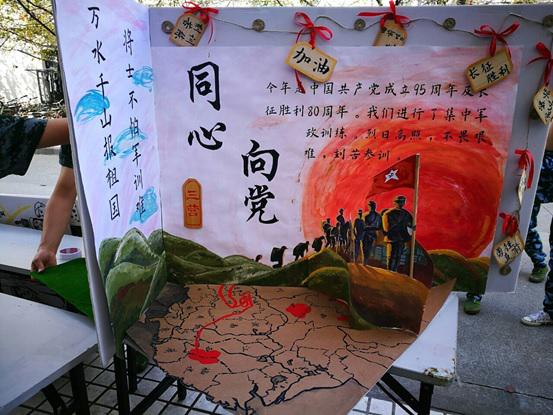 万水千山报祖国
将士不怕军训难
同心
向党
三营
今年是中国共产党成立95周年及长
征胜利80周年。我们进行了集中军
政训练，烈日高照，不畏艰
难，刻苦参训。
加油
长征
胜利